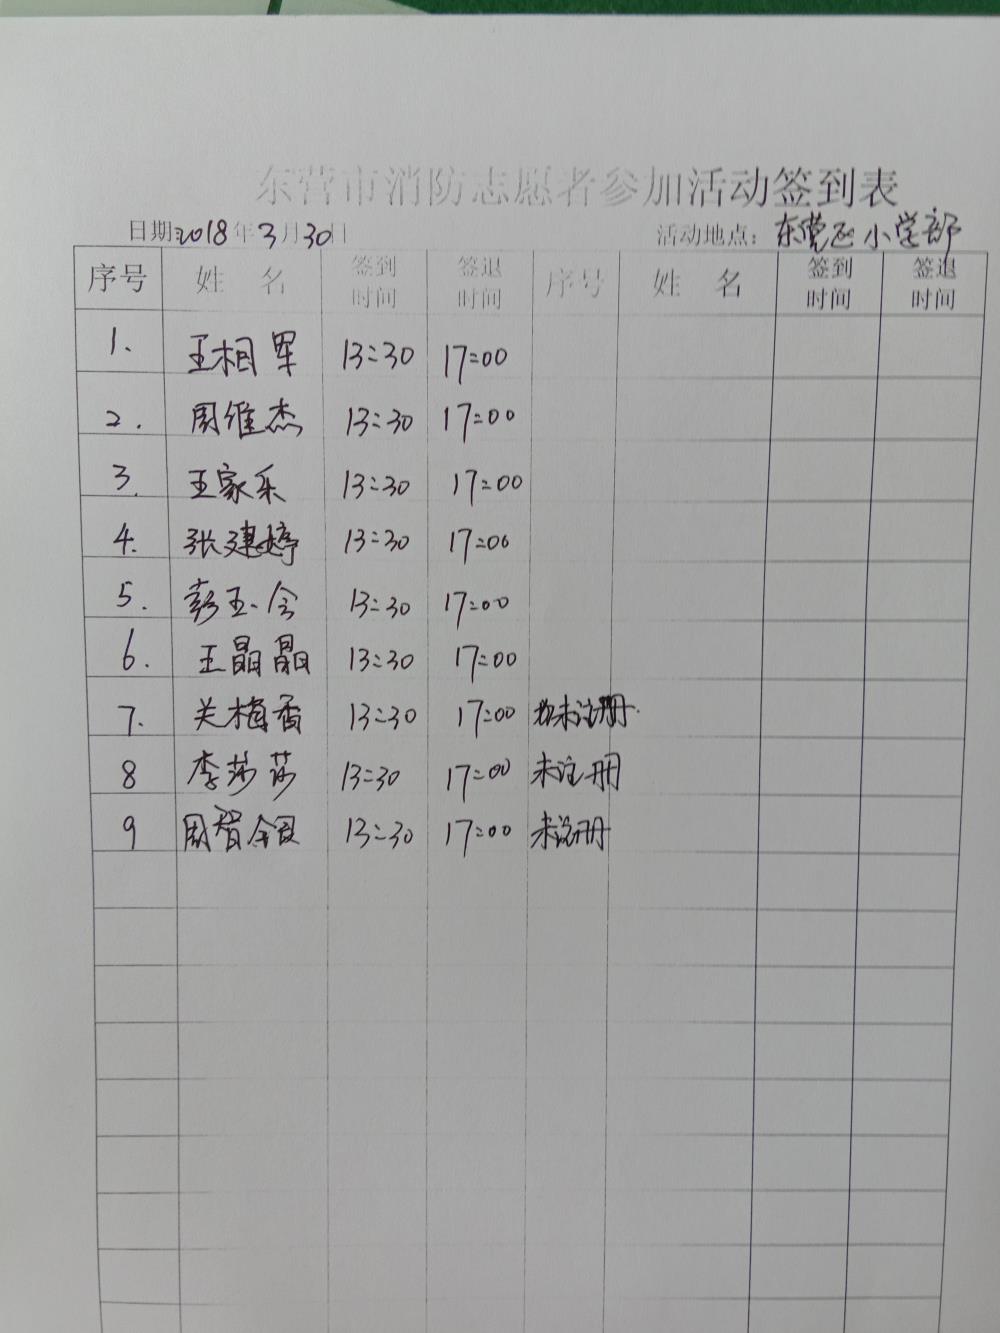 东营市消防志愿者参加活动签到表
日期:2018年3月30日 活动地点: 小学部
序号 姓 名 签到时间 签退时间 序号 姓 名 签到时间 签退时间
1. 王相军 13:30 17:00
2. 周维杰 13:30 17:00
3. 王家乐 13:30 17:00
4. 张建婷 13:30 17:00
5. 彭玉令 13:30 17:00
6. 王晶晶 13:30 17:00
7. 关梅香 13:30 17:00 未注册
8 李莎莎 13:30 17:00 未注册
9 周智 13:30 17:00 未注册